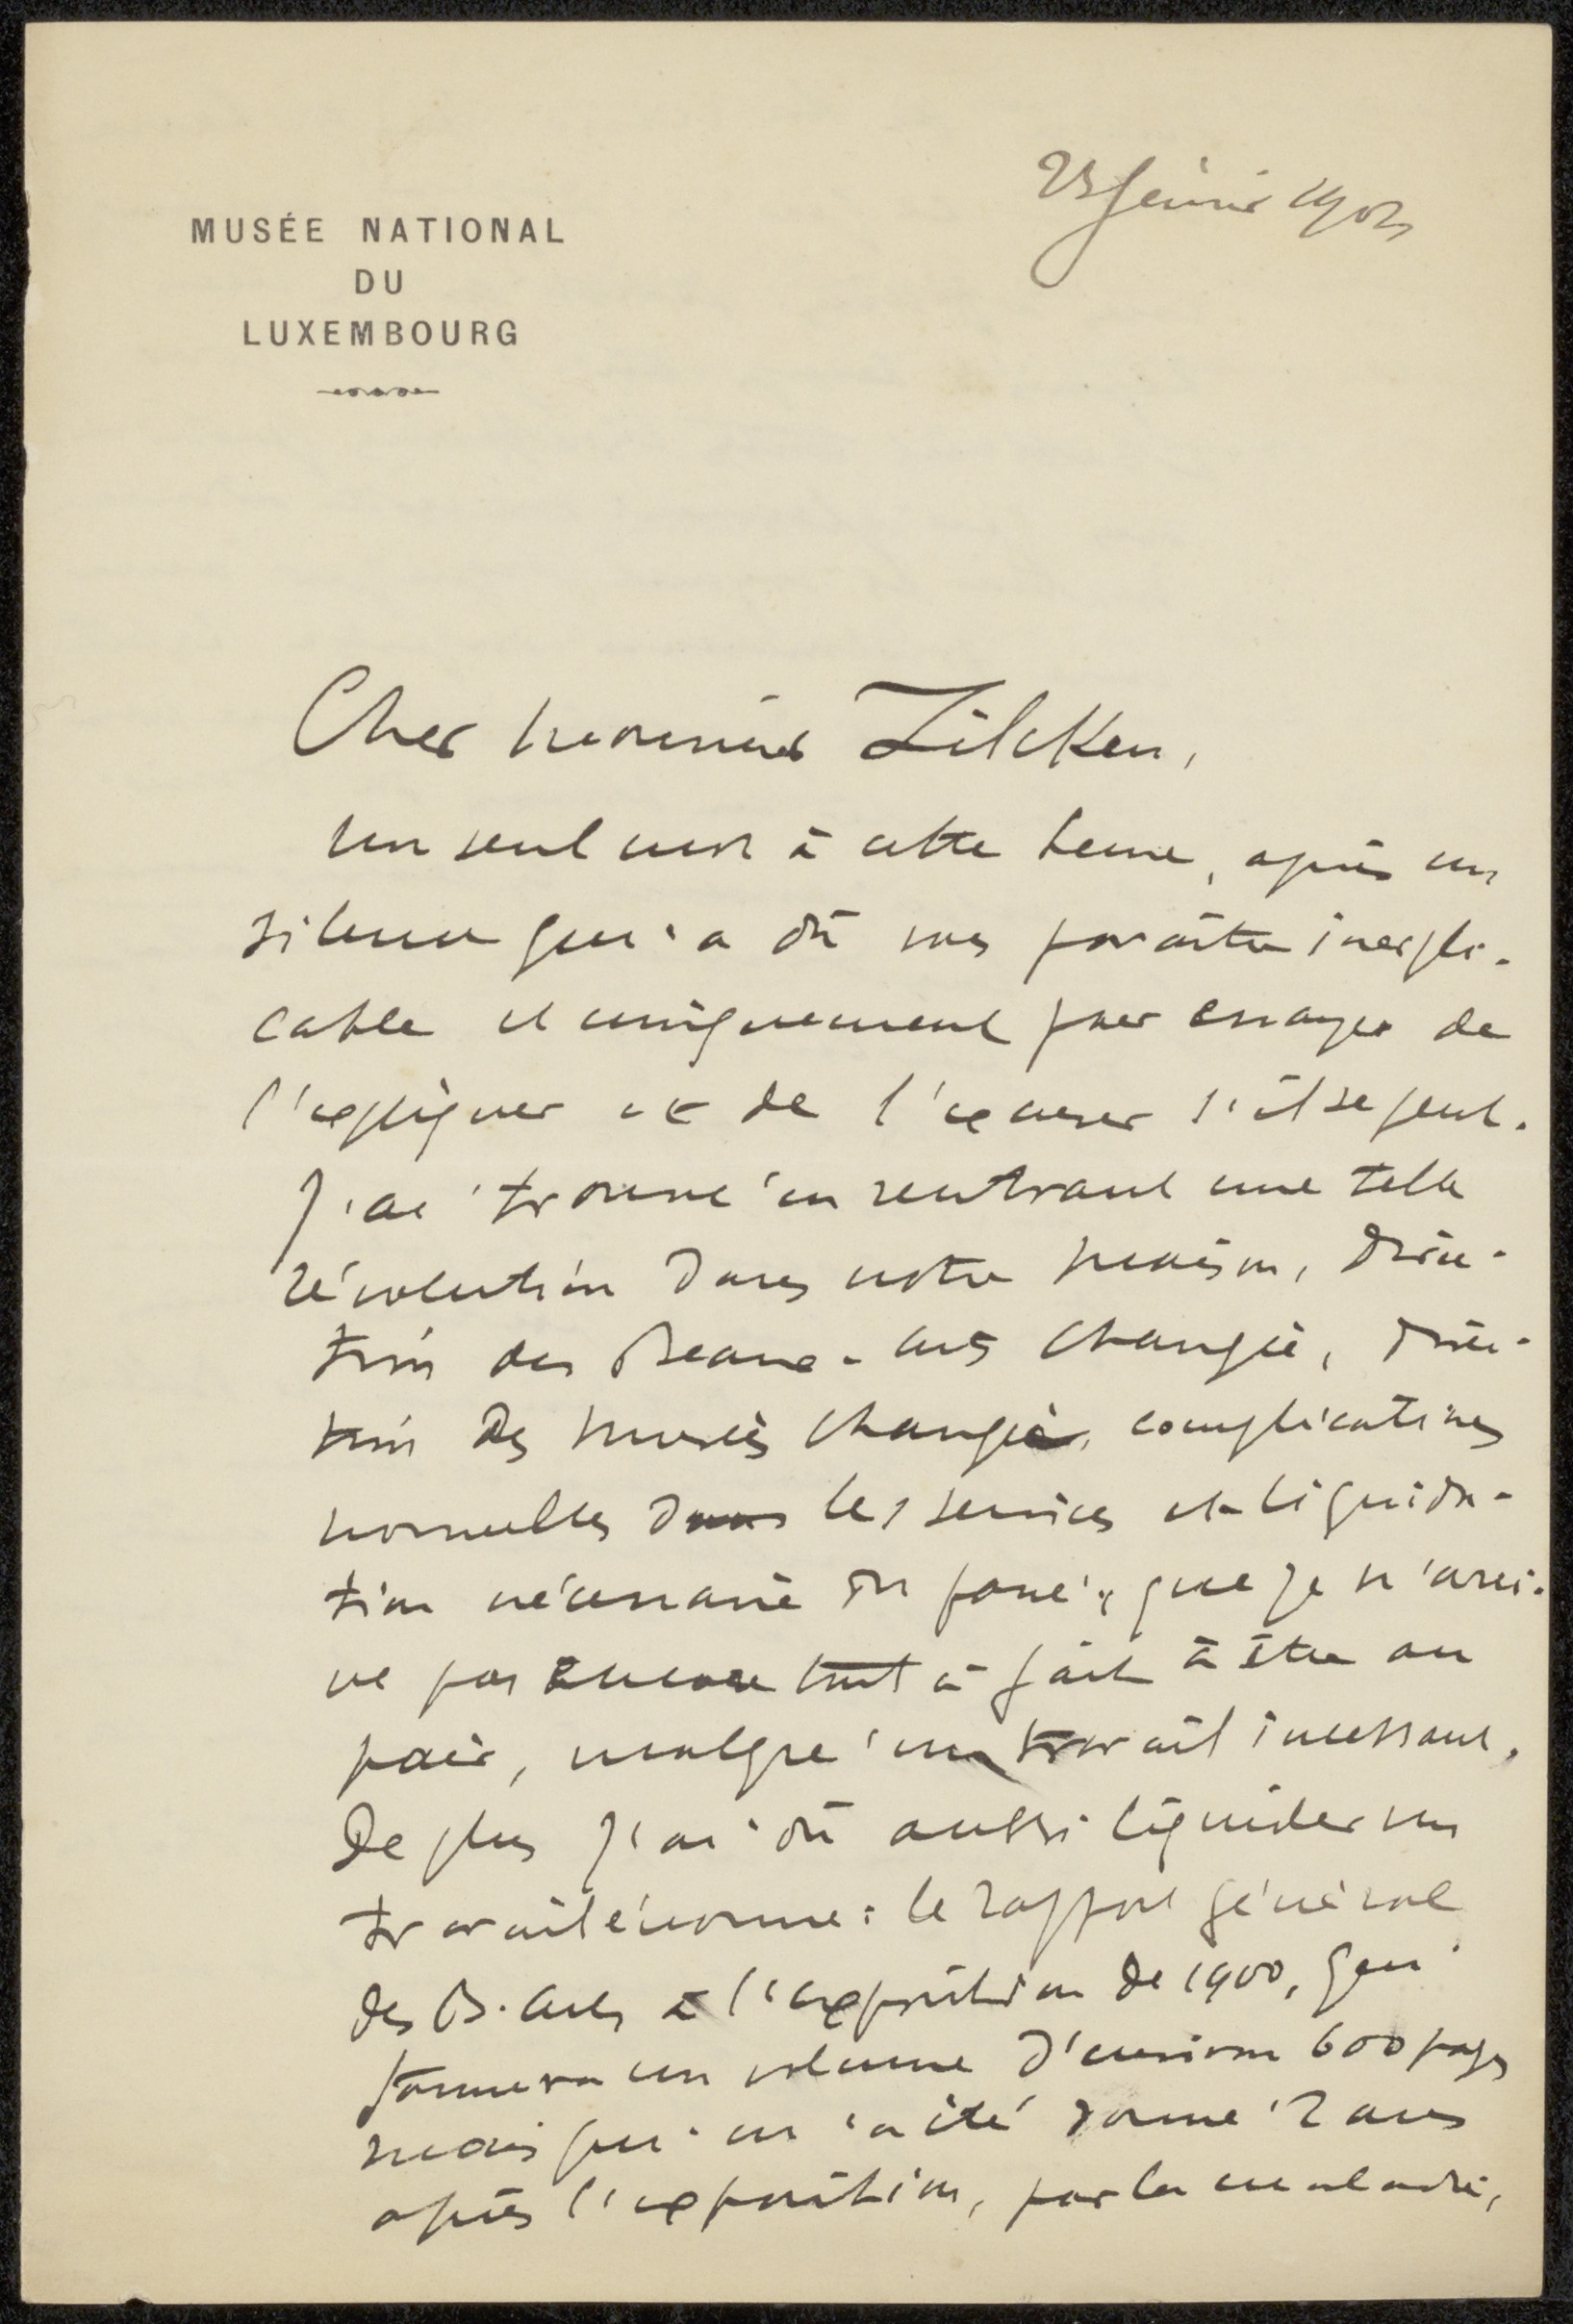 23 février 1903
MUSÉE NATIONAL
DU
LUXEMBOURG
Cher monsieur Zilcken,
un seul mot à cette heure, après un
silence qui a dû vous paraître inexpli-
cable et uniquement pour essayer de
l'expliquer et de l'excuser s'il se peut.
J'ai trouvé en rentrant une telle
révolution dans notre maison, direc-
tion des Beaux-arts changée, direc-
tion des musées changée, complications
nouvelles dans les services et liquida-
tion nécessaire du passé, que je n'arri-
ve pas encore tout à fait à être au
pair, malgré un travail incessant.
De plus j'ai dû aussi liquider un
travail énorme : le rapport général
des B. arts à l'exposition de 1900, qui
formera un volume d'environ 600 pages
mais qui m'a été donné 2 ans
après l'exposition, par la maladie,